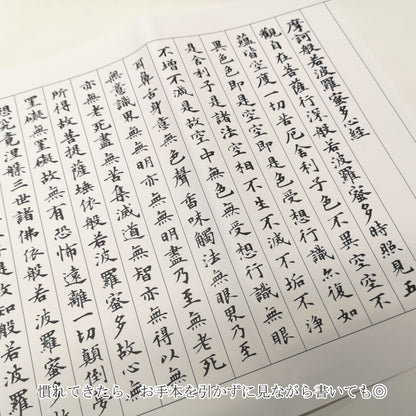 摩訶般若波羅蜜多心經
觀自在菩薩行深般若波羅蜜多時照見五
蘊皆空度一切苦厄舍利子色不異空空不
異色色即是空空即是色受想行識亦復如
是舍利子是諸法空相不生不滅不垢不淨
不增不減是故空中無色無受想行識無眼
耳鼻舌身意無色聲香味觸法無眼界乃至
無意識界無無明亦無無明盡乃至無老死
亦無老死盡無苦集滅道無智亦無得以無
所得故菩提薩埵依般若波羅蜜多故心無
罣礙無罣礙故無有恐怖遠離一切顛倒夢
想究竟涅槃三世諸佛依般若波羅蜜多
故知般若波羅
慣れてきたら、お手本を引かずに見ながら書いても◎